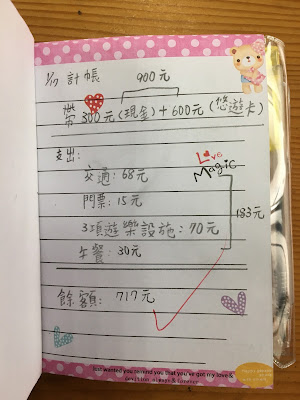 1/17 計帳
900元
帶 300元(現金)+600元(悠遊卡)
支出:
交通:68元
Love
Magic
門票:15元
183元
3項遊樂設施:70元
午餐:30元
餘額:717元
Just wanted you remind you that you've got my love &
devotion, always & forever